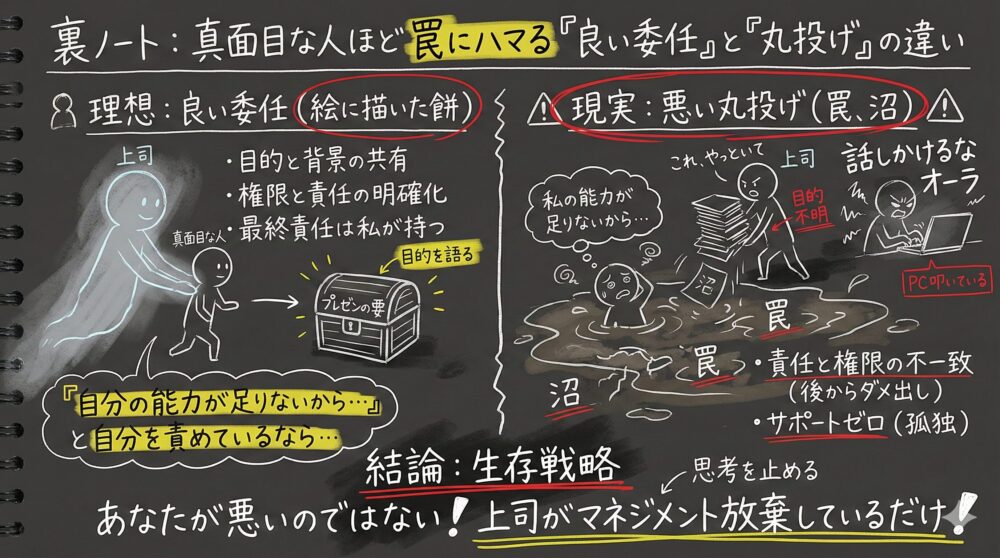 裏ノート：真面目な人ほど罠にハマる『良い委任』と『丸投げ』の違い
理想：良い委任（絵に描いた餅）
上司
・目的と背景の共有
・権限と責任の明確化
・最終責任は私が持つ
真面目な人
目的を語る
プレゼンの要
『自分の能力が足りないから…』
と自分を責めているなら…
現実：悪い丸投げ（罠、沼）
これ、やっといて
上司
話しかけるな
オーラ
私の能力が
足りないから…
目的
不明
沼
PC叩いている
罠
罠
沼
・責任と権限の不一致
（後からダメ出し）
・サポートゼロ（孤独）
結論：生存戦略
思考を止める
あなたが悪いのではない！上司がマネジメント放棄しているだけ！